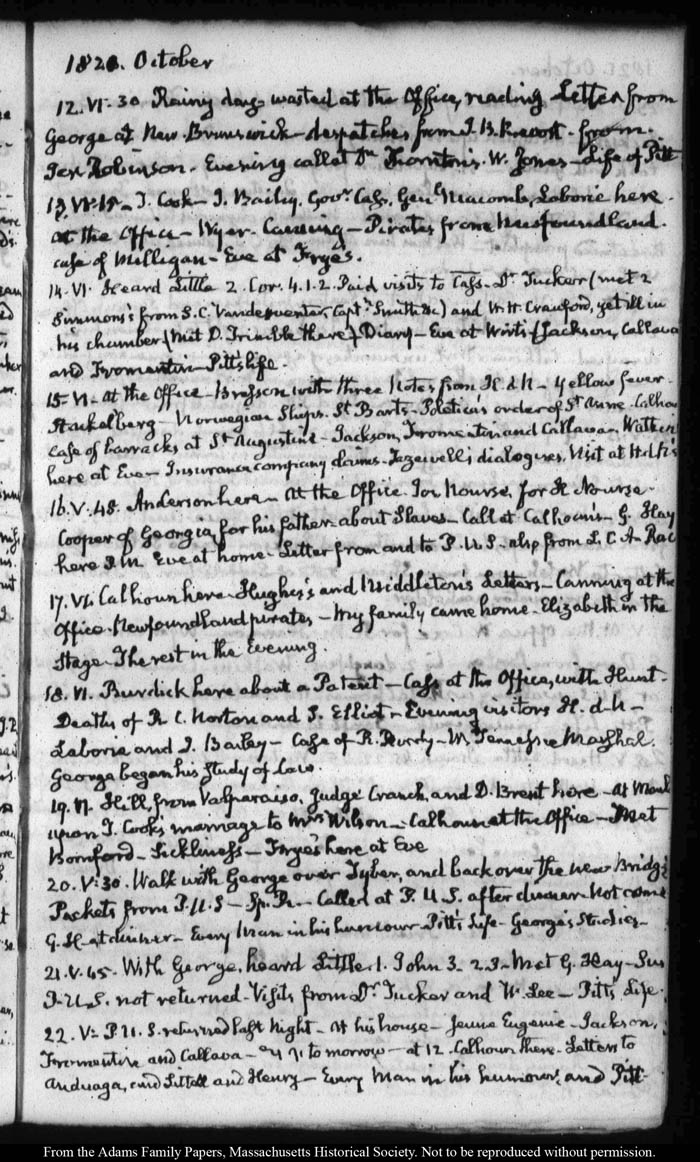 1821. October
12. VI:30. Rainy day wasted at the Office, reading. Letters from
George at New-Brunswick—despatches from J. B. Prevost. from
Jer. Robinson. Evening call at Dr Thornton's. W. Jones—Life of Pitt
13. J. Cook—J. Bailey. Govr Cass, Genl Macomb, Laborie here.
at the Office—Wyer. Canning—Pirates from Newfoundland.
case of Milligan—Eve at Frye's.
14. VI. Heard Little 2. Cor. 4. 1. 2. Paid visits to Cass. Dr Tucker (met 2
Simmons's from S. C. Vandeventer, Captn Smith &c) and W. H. Crawford, yet ill in
his chamber (met D. Trimble there) Diary—Eve at Wirt's (Jackson, Callava
and Fromentin—Pitts life.
15. VI. At the Office—Bresson with three Notes from H. d N—Yellow fever.
Stackelberg—Norwegian Ships. St Barts—Poletica's order of St Anne. Calhoun
case of barracks at St Augustine—Jackson, Fromentin and Callava. Watkins
here at Eve—Insurance company claims—Tazewell's dialogues. Visit at H. d N's
16. V:45. Anderson here—At the Office. Jos. Nourse, for H Nourse.
Cooper of Georgia, for his father about Slaves—Call at Calhoun's—G. Hay
here Eve at home—Letter from and to P. U. S—also from L. C. A.
17. VI. Calhoun here. Hughes's and Middleton's Letters—Canning at the
Office. Newfoundland pirates—My family came home. Elizabeth in the
Stage. The rest in the Evening.
18. VI. Burdick here about a Patent—Cass at the Office, with Hunt.
Deaths of R. C. Norton and S. Elliot—Evening visitors H. d N—
Laborie and J. Bailey—Case of R. Purdy—W. Tennessee Marshal.
George began his study of Law.
19. VI. Hill, from Valparaiso, Judge Cranch, and D. Brent here—At
upon J. Cook's marriage to Mrs Wilson—Calhoun at the Office—Met
Bomford—Sickliness—Frye's here at Eve
20. V:30. Walk with George over Tyber, and back over the new Bridge
Packets from P. U. S—Sp. Pr.—Called at P. U. S. after dinner. Not come
G. H—at dinner—Every Man in his humour Pitt's Life—George's Studies—
21. V:45. With George, heard Little. 1. John 3. 2. 3—Met G. Hay
P. U. S. not returned—Visits from Dr. Tucker and W. Lee—Pitts Life.
22. V: P. U. S. returned last Night—At his house—Jeune Eugenie—Jackson,
Fromentin and Callava— to morrow—at 12. Calhoun there—Letters to
Anduaga, and Littell and Henry—Every Man in his humour, and Pitt.
From the Adams Family Papers, Massachusetts Historical Society. Not to be reproduced without permission.